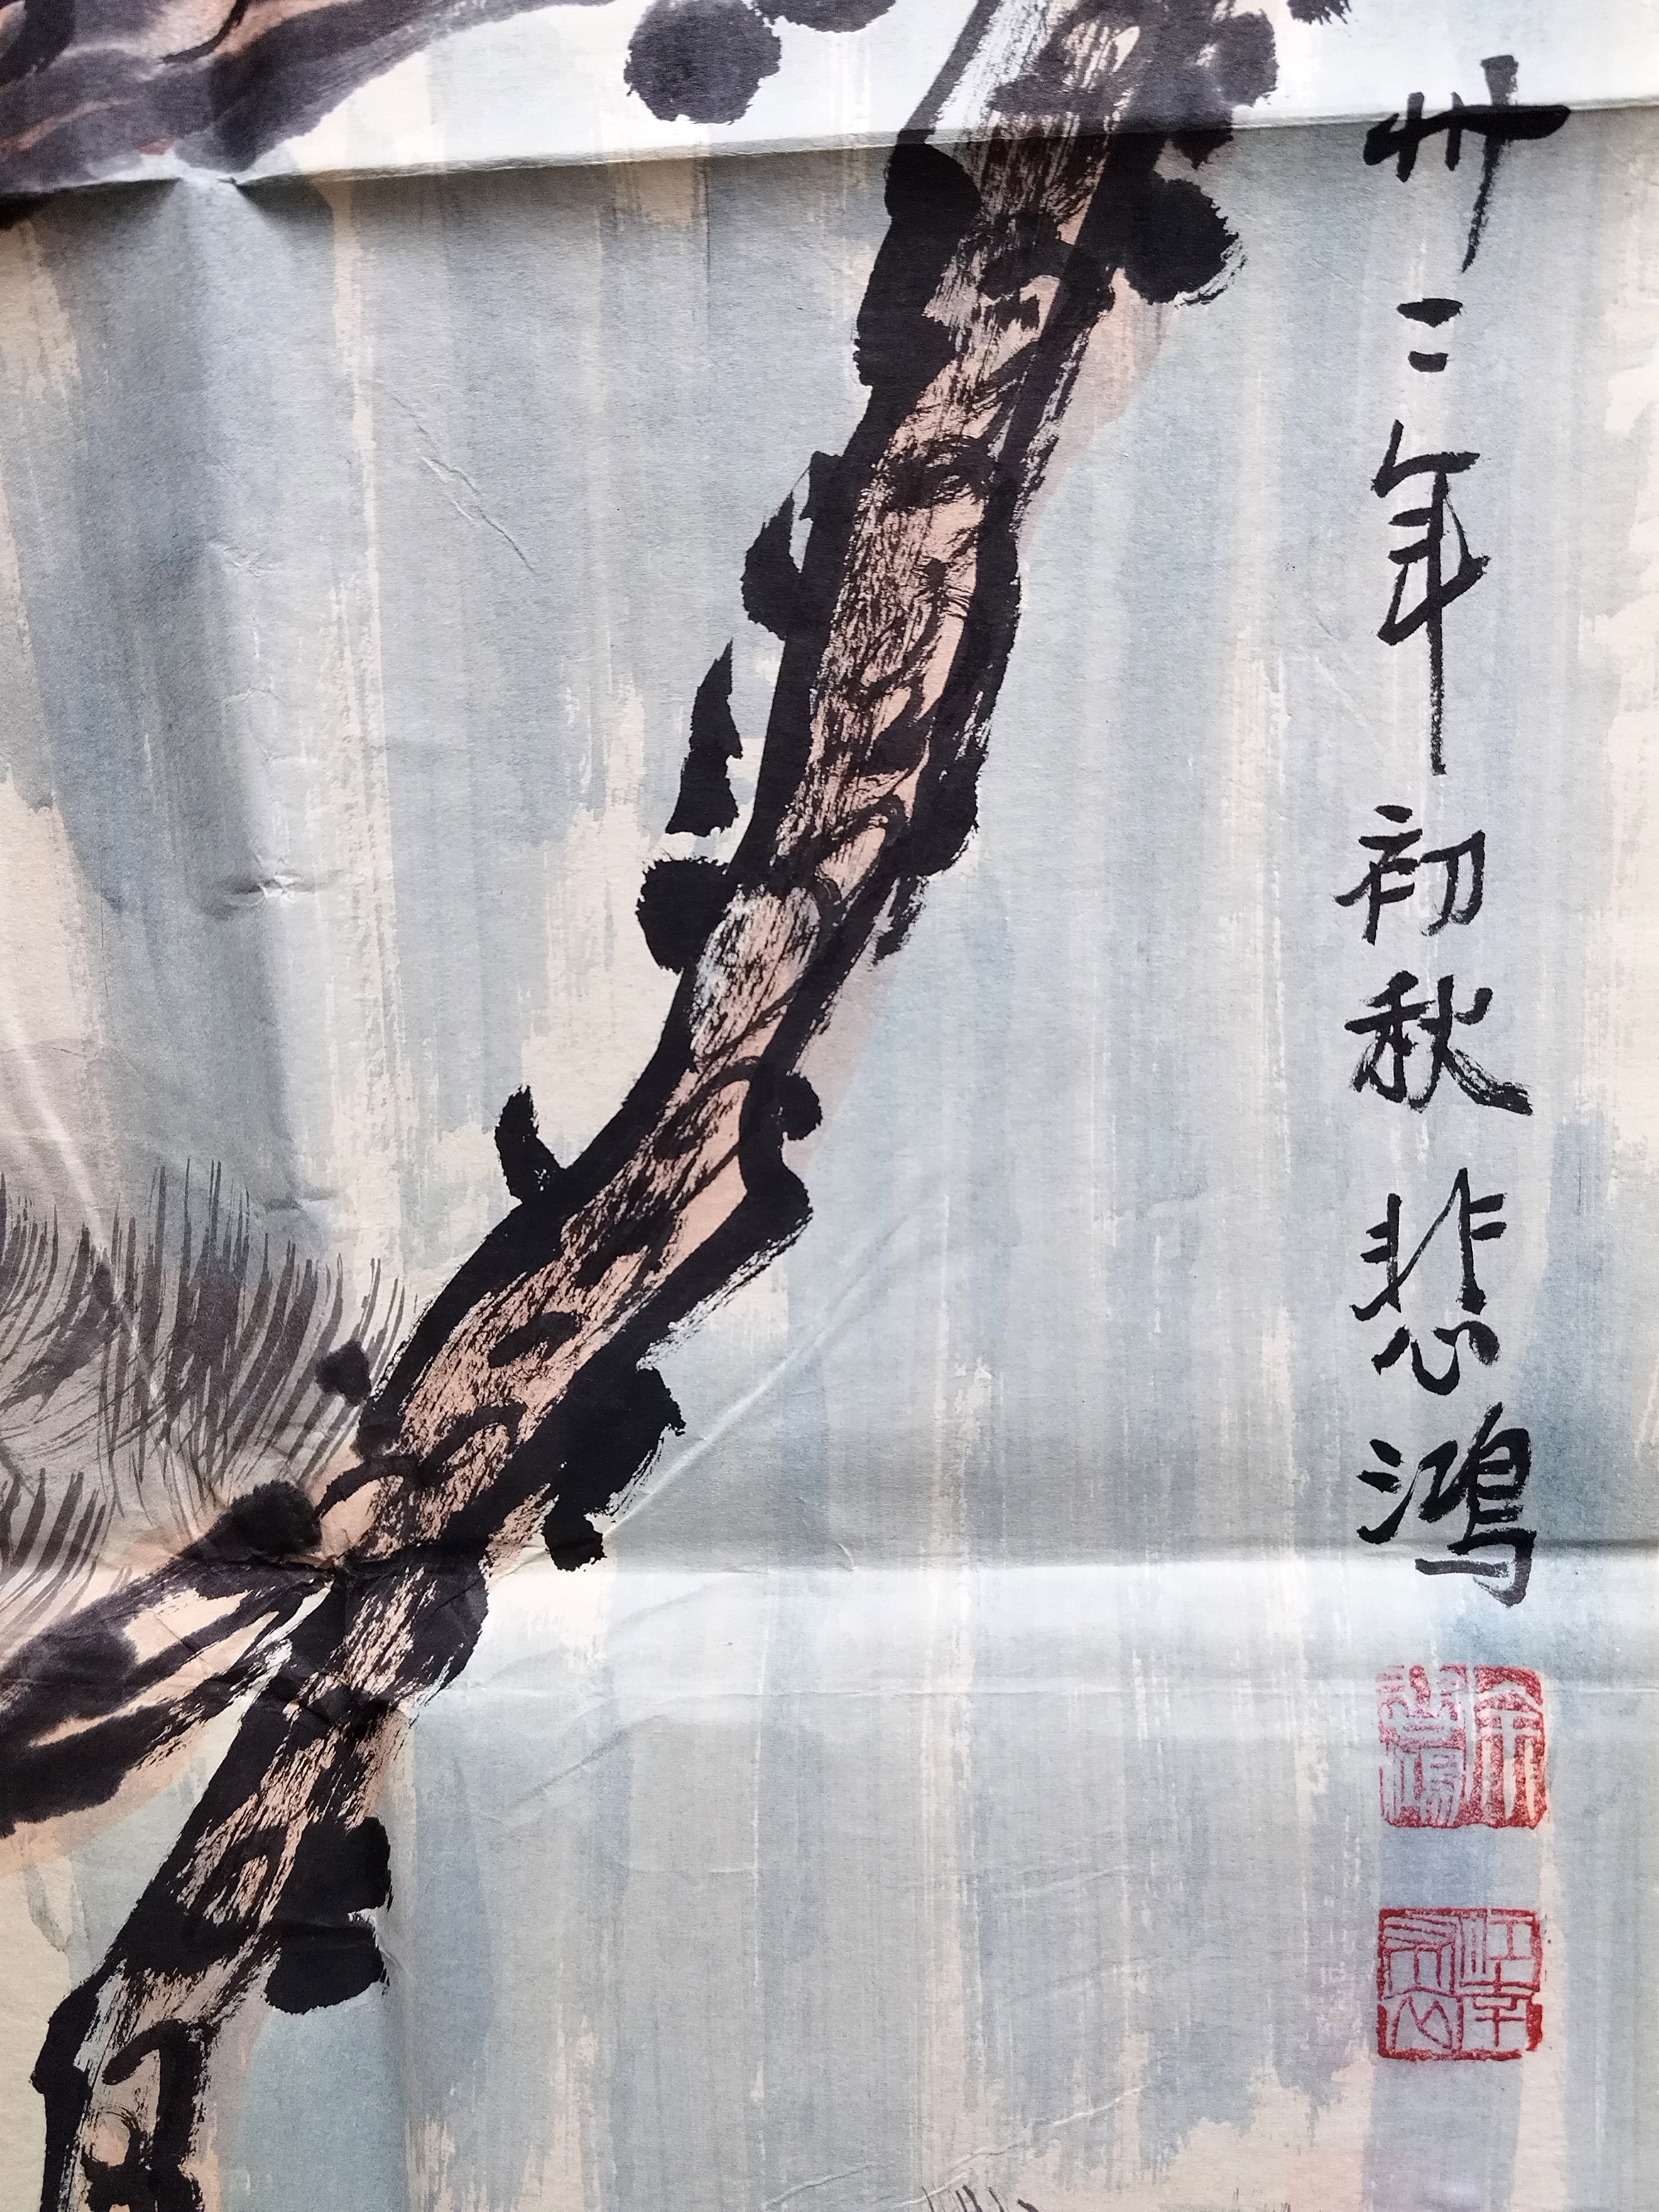 卅二年初秋悲鸿
徐悲鴻